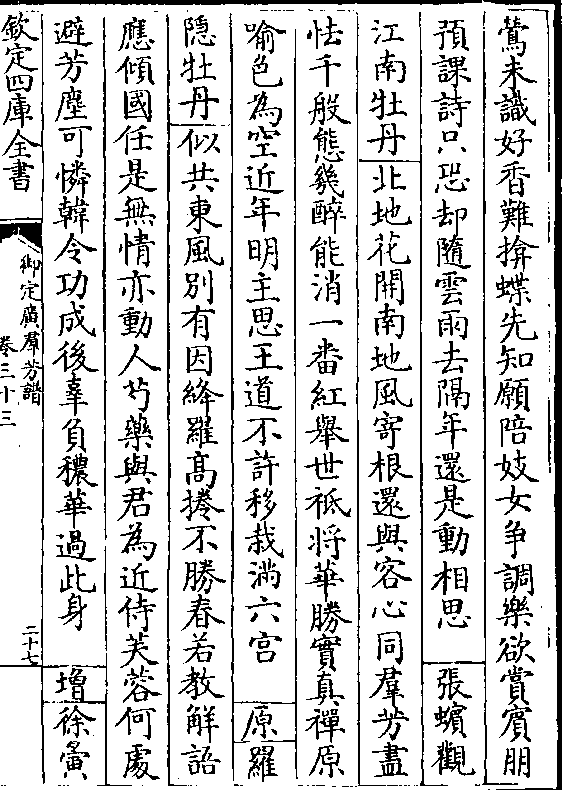 鶯未識好香難揜蝶先知願陪妓女争調樂欲賞賓朋
預課詩只恐却隨雲雨去隔年還是動相思 張蠙觀
江南牡丹 北地花開南地風寄根還與客心同羣芳盡
怯千般態幾醉能消一番紅舉世祗將華勝實真禪原
喻色為空近年明主思王道不許移栽滿六宫 原 羅
隱牡丹 似共東風別有因絳羅髙捲不勝春若教解語
應傾國任是無情亦動人芍藥與君為近侍芙蓉何處
避芳塵可憐韓令功成後辜負穠華過此身 增 徐夤
欽定四庫全書
御定廣羣芳譜
卷三十三
二十七